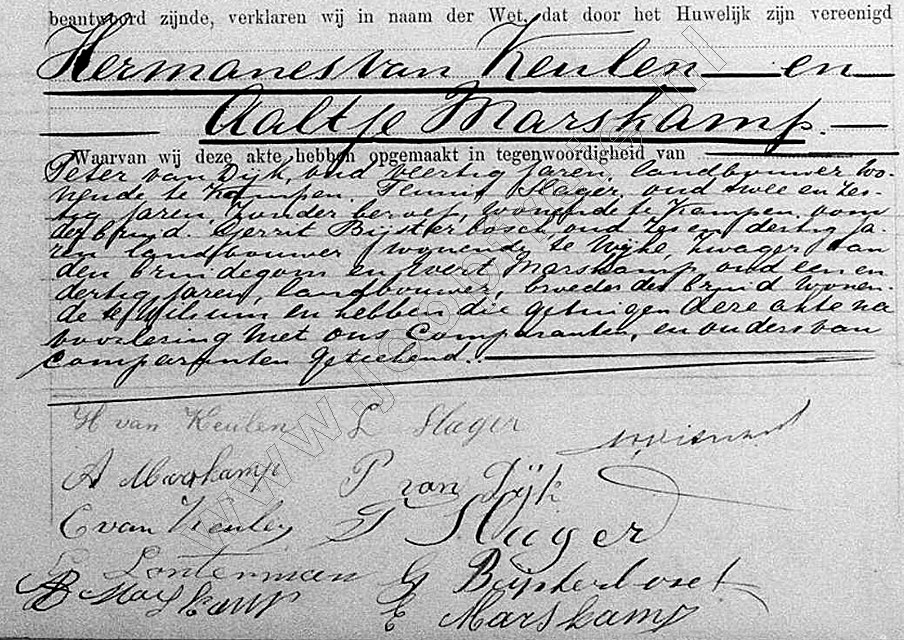 beantwoord zijnde, verklaren wij in naam der Wet, dat door het Huwelijk zijn vereenigd
Hermanes van Keulen en
Aaltje Marskamp.
Waarvan wij deze akte hebben opgemaakt in tegenwoordigheid van
Peter van Dijk, oud veertig jaren, landbouwer wo-
nende te Kampen, Teunis Slager, oud twee en zes-
tig jaren, zonder beroep, wonende te Kampen, oom
der bruid. Gerrit Bijsterbosch oud zes en dertig ja-
ren landbouwer wonende te Wijhe, zwager van
den bruidegom en Evert Marskamp oud een en
dertig jaren, landbouwer, broeder der bruid wonen-
de te Wilsum en hebben die getuigen deze akte na
voorlezing met ons Comparanten, en ouders van
comparanten geteekend.
H van Keulen L Slager
A Marskamp P van Dijk
C van Keulen T Slager
Lonterman G Bijsterbosch
B Marskamp E Marskamp